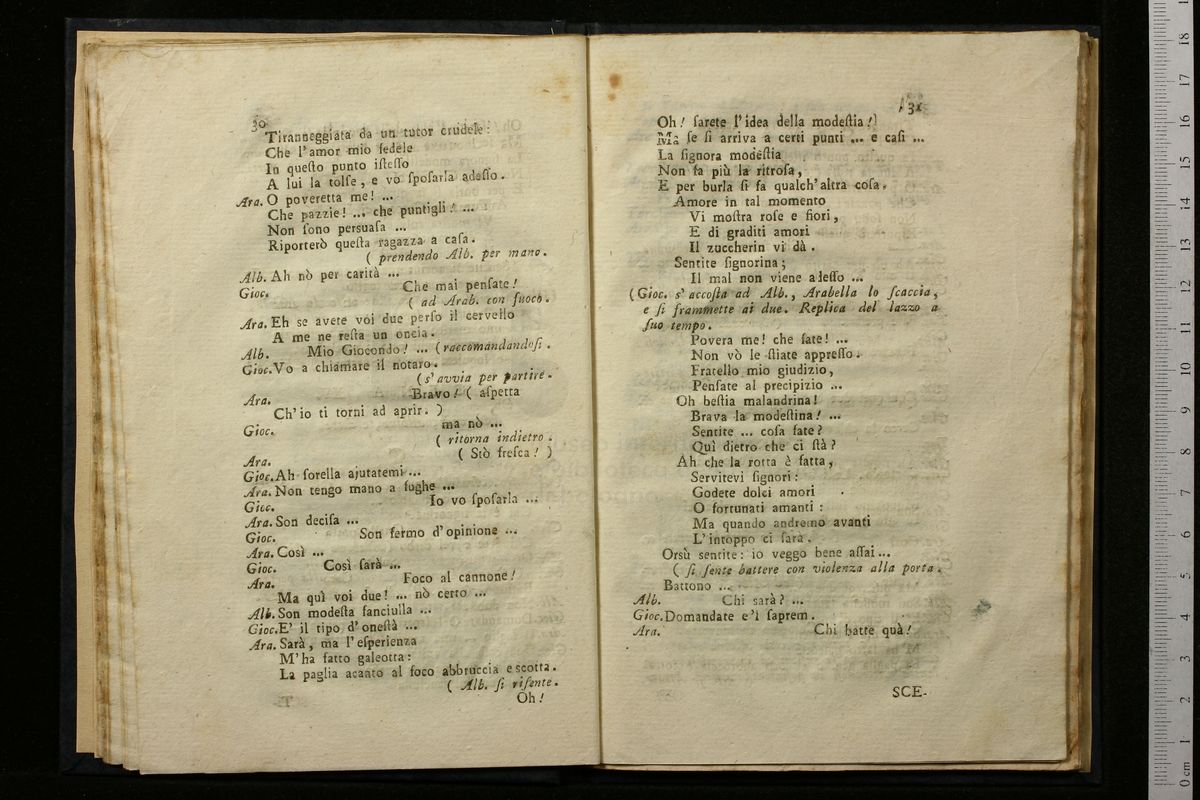 30
Tiranneggiata da un tutor crudele:
Che l'amor mio fedele
In queſto punto iſteſſo
A lui la tolſe, e vò ſpoſarla adeſſo.
Ara. O poveretta me! ...
Che pazzie! ... che puntigli! ...
Non ſono perſuaſa ...
Riporterò queſta ragazza a caſa.
( prendendo Alb. per mano.
Alb. Ah nò per carità ...
Gioc. Che mai penſate!
( ad Arab. con fuoco.
Ara. Eh se avete voi due perſo il cervello
A me ne reſta un oncia.
Alb. Mio Giocondo! ... (raccomandandoſi.
Gioc. Vo a chiamare il notaro.
(s' avvia per partire.
Ara. Bravo! ( aſpetta
Ch'io ti torni ad aprir. )
Gioc. ma nò ...
( ritorna indietro.
Ara. ( Stò freſca! )
Gioc. Ah ſorella ajutatemi ...
Ara. Non tengo mano a fughe ...
Gioc. Io vo ſpoſarla ...
Ara. Son deciſa ...
Gioc. Son fermo d'opinione ...
Ara. Così ...
Gioc. Così ſarà ...
Ara. Foco al cannone!
Ma quì voi due! ... nò certo ...
Alb. Son modeſta fanciulla ...
Gioc. E' il tipo d'oneſtà ...
Ara. Sarà, ma l'eſperienza
M'ha fatto galeotta:
La paglia acanto al foco abbruccia e scotta.
( Alb. ſi riſente.
Oh!
31
Oh! ſarete l'idea della modeſtia!
Ma ſe ſi arriva a certi punti ... e caſi ...
La ſignora modeſtia
Non fa più la ritroſa,
E per burla ſi fa qualch'altra coſa.
Amore in tal momento
Vi moſtra roſe e fiori,
E di graditi amori
Il zuccherin vi dà.
Sentite ſignorina;
Il mal non viene adeſſo ...
(Gioc. s' accoſta ad Alb., Arabella lo ſcaccia,
e ſi frammette ai due. Replica del lazzo a
ſuo tempo.
Povera me! che fate! ...
Non vò le ſtiate appreſſo.
Fratello mio giudizio,
Penſate al precipizio ...
Oh beſtia malandrina!
Brava la modeſtina! ...
Sentite ... coſa fate?
Quì dietro che ci ſtà?
Ah che la rotta è fatta,
Servitevi ſignori:
Godete dolci amori
O fortunati amanti:
Ma quando andremo avanti
L'intoppo ci ſarà.
Orsù sentite: io veggo bene aſſai...
( ſi ſente battere con violenza alla porta.
Battono ...
Alb. Chi sarà? ...
Gioc. Domandate e'l ſaprem.
Ara. Chi batte quà!
SCE-
0 cm 1 2 3 4 5 6 7 8 9 10 11 12 13 14 15 16 17 18